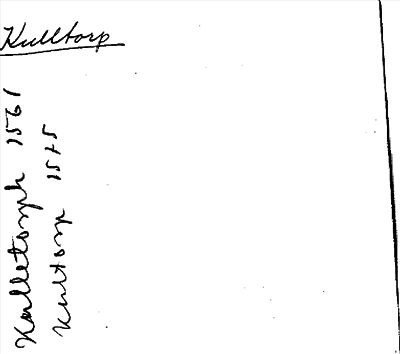 Kulltorp
Kulletorph 1561
Kulltorp 1575